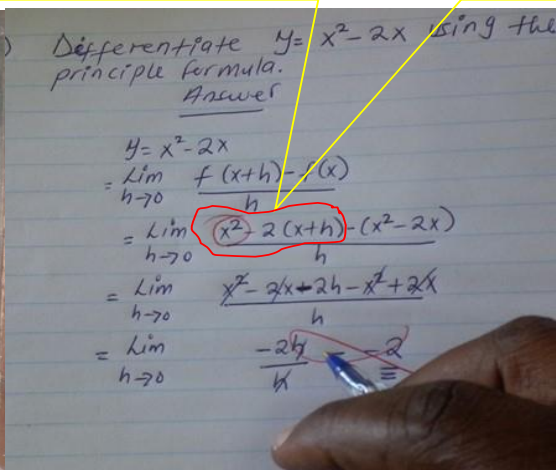 Differentiate y = x² - 2x using the
principle formula.
Answer
y = x² - 2x
= Lim h→0 f(x+h) - f(x) / h
= Lim h→0 x² - 2(x+h) - (x² - 2x) / h
= Lim h→0 x² - 2x - 2h - x² + 2x / h
= Lim h→0 -2h / h = -2